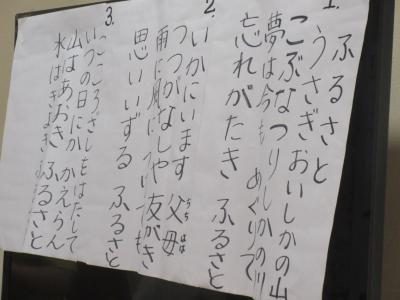 1. ふるさと
うさぎおいしかの山
こぶなつりしかの川
夢は今もめぐりて
忘れがたき ふるさと
2.
いかにいます 父母
ちち はは
つつがなしや 友がき
雨に風につけても
思いいずる ふるさと
3.
こころざしをはたして
いつの日にか かえらん
山はあおき ふるさと
水はきよき ふるさと